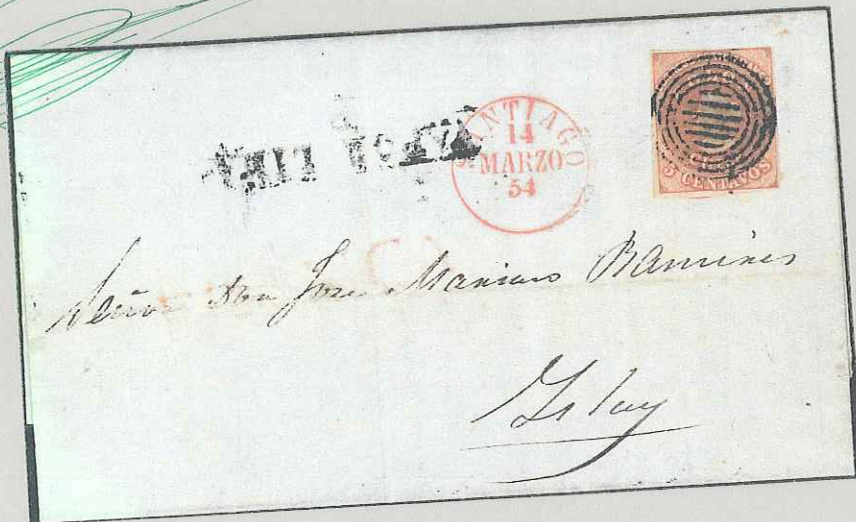 SANTIAGO
14
MARZO
54
5 CENTAVOS
Señor Don Jose Mariano Ramires
Islay